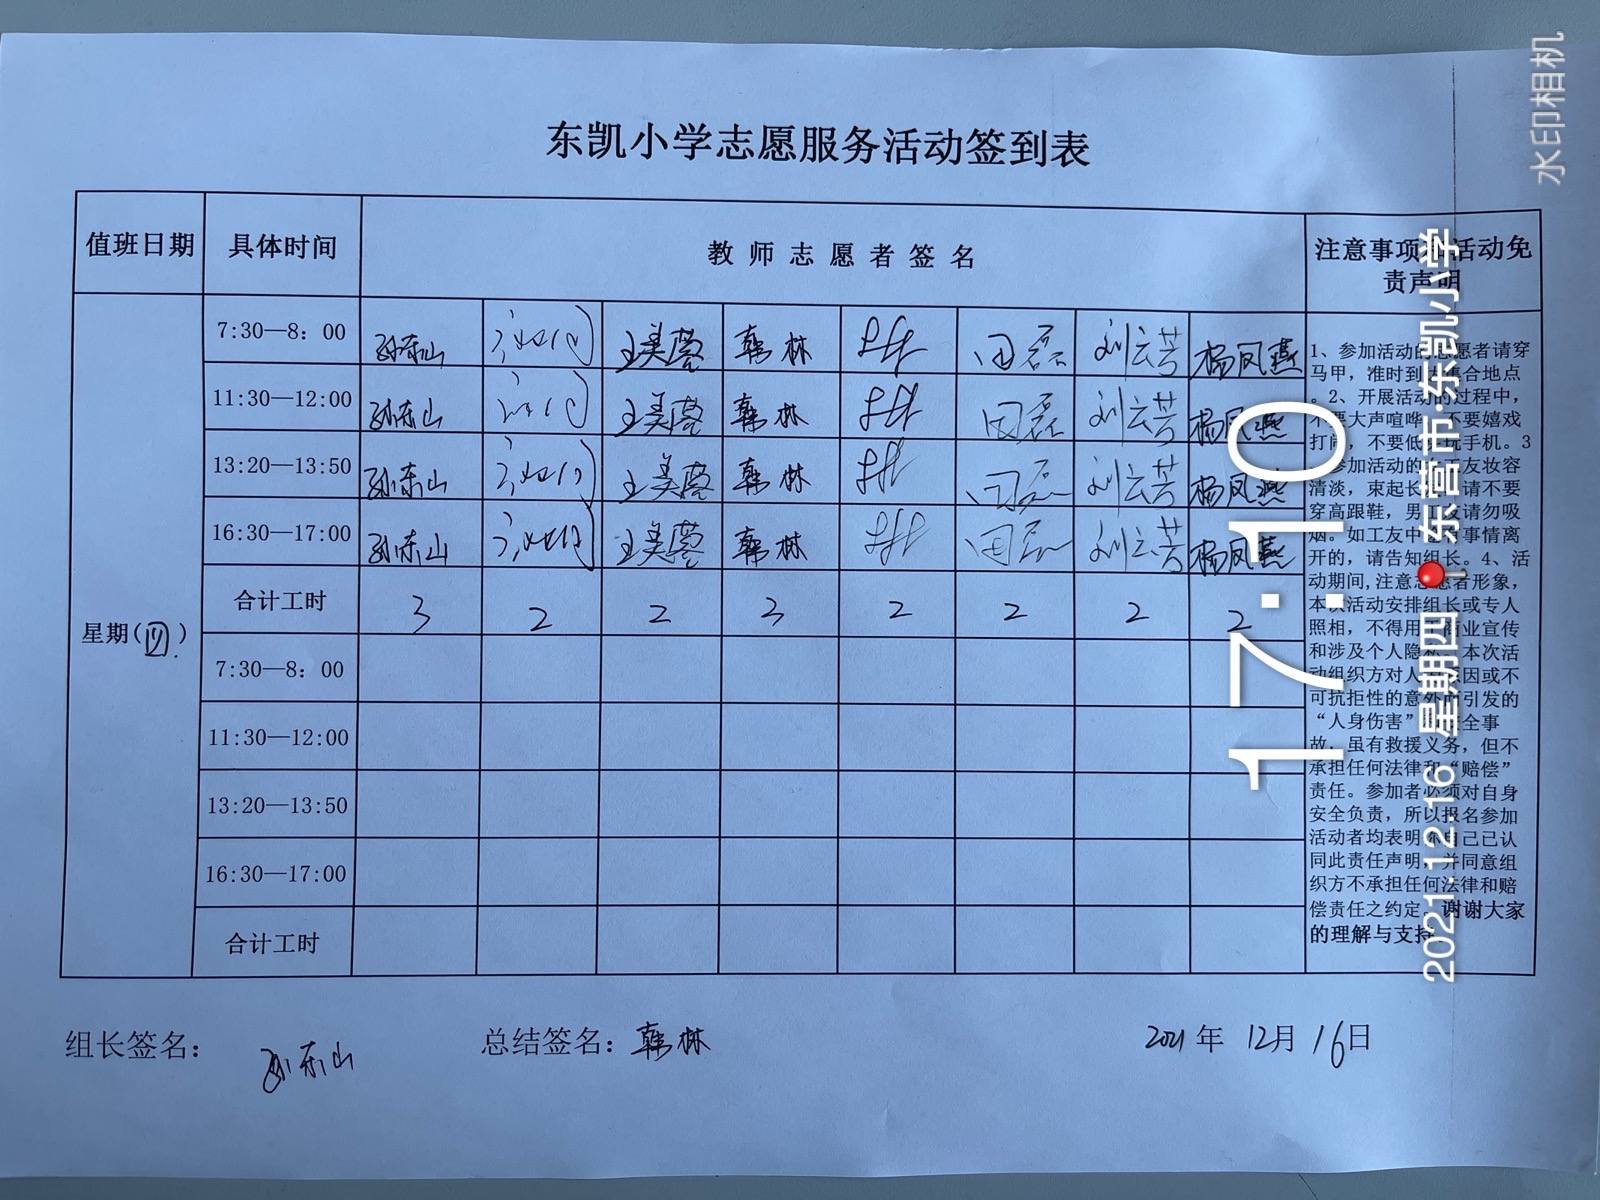 东凯小学志愿服务活动签到表
值班日期 具体时间 教师志愿者签名 注意事项 活动免
责声明
7:30—8：00 孙东山 王美蓉 韩林 田磊 刘云芳 杨凤燕
11:30—12:00 孙东山 王美蓉 韩林 田磊 刘云芳 杨凤燕
13:20—13:50 孙东山 王美蓉 韩林 田磊 刘云芳 杨凤燕
16:30—17:00 孙东山 王美蓉 韩林 田磊 刘云芳 杨凤燕
合计工时 3 2 2 3 2 2 2 2
星期(四)
7:30—8：00
11:30—12:00
13:20—13:50
16:30—17:00
合计工时
1、参加活动的志愿者请穿
马甲，准时到 集合地点
。2、开展活动的过程中，
不要大声喧哗 不要嬉戏
打闹，不要低 玩手机。3
参加活动的 友妆容
清淡，束起长 请不要
穿高跟鞋，男工友请勿吸
烟。如工友中 事情离
开的，请告知组长。4、活
动期间,注意志愿者形象，
本次活动安排组长或专人
照相，不得用 商业宣传
和涉及个人隐私。本次活
动组织方对人 原因或不
可抗拒性的意外 引发的
“人身伤害” 全事
故，虽有救援义务，但不
承担任何法律和“赔偿”
责任。参加者必须对自身
安全负责，所以报名参加
活动者均表明 自己已认
同此责任声明，并同意组
织方不承担任何法律和赔
偿责任之约定。谢谢大家
的理解与支持
组长签名： 孙东山 总结签名：韩林 2021年 12月 16日
17:10
2021.12.16 星期四 东营市·东凯小学
水印相机